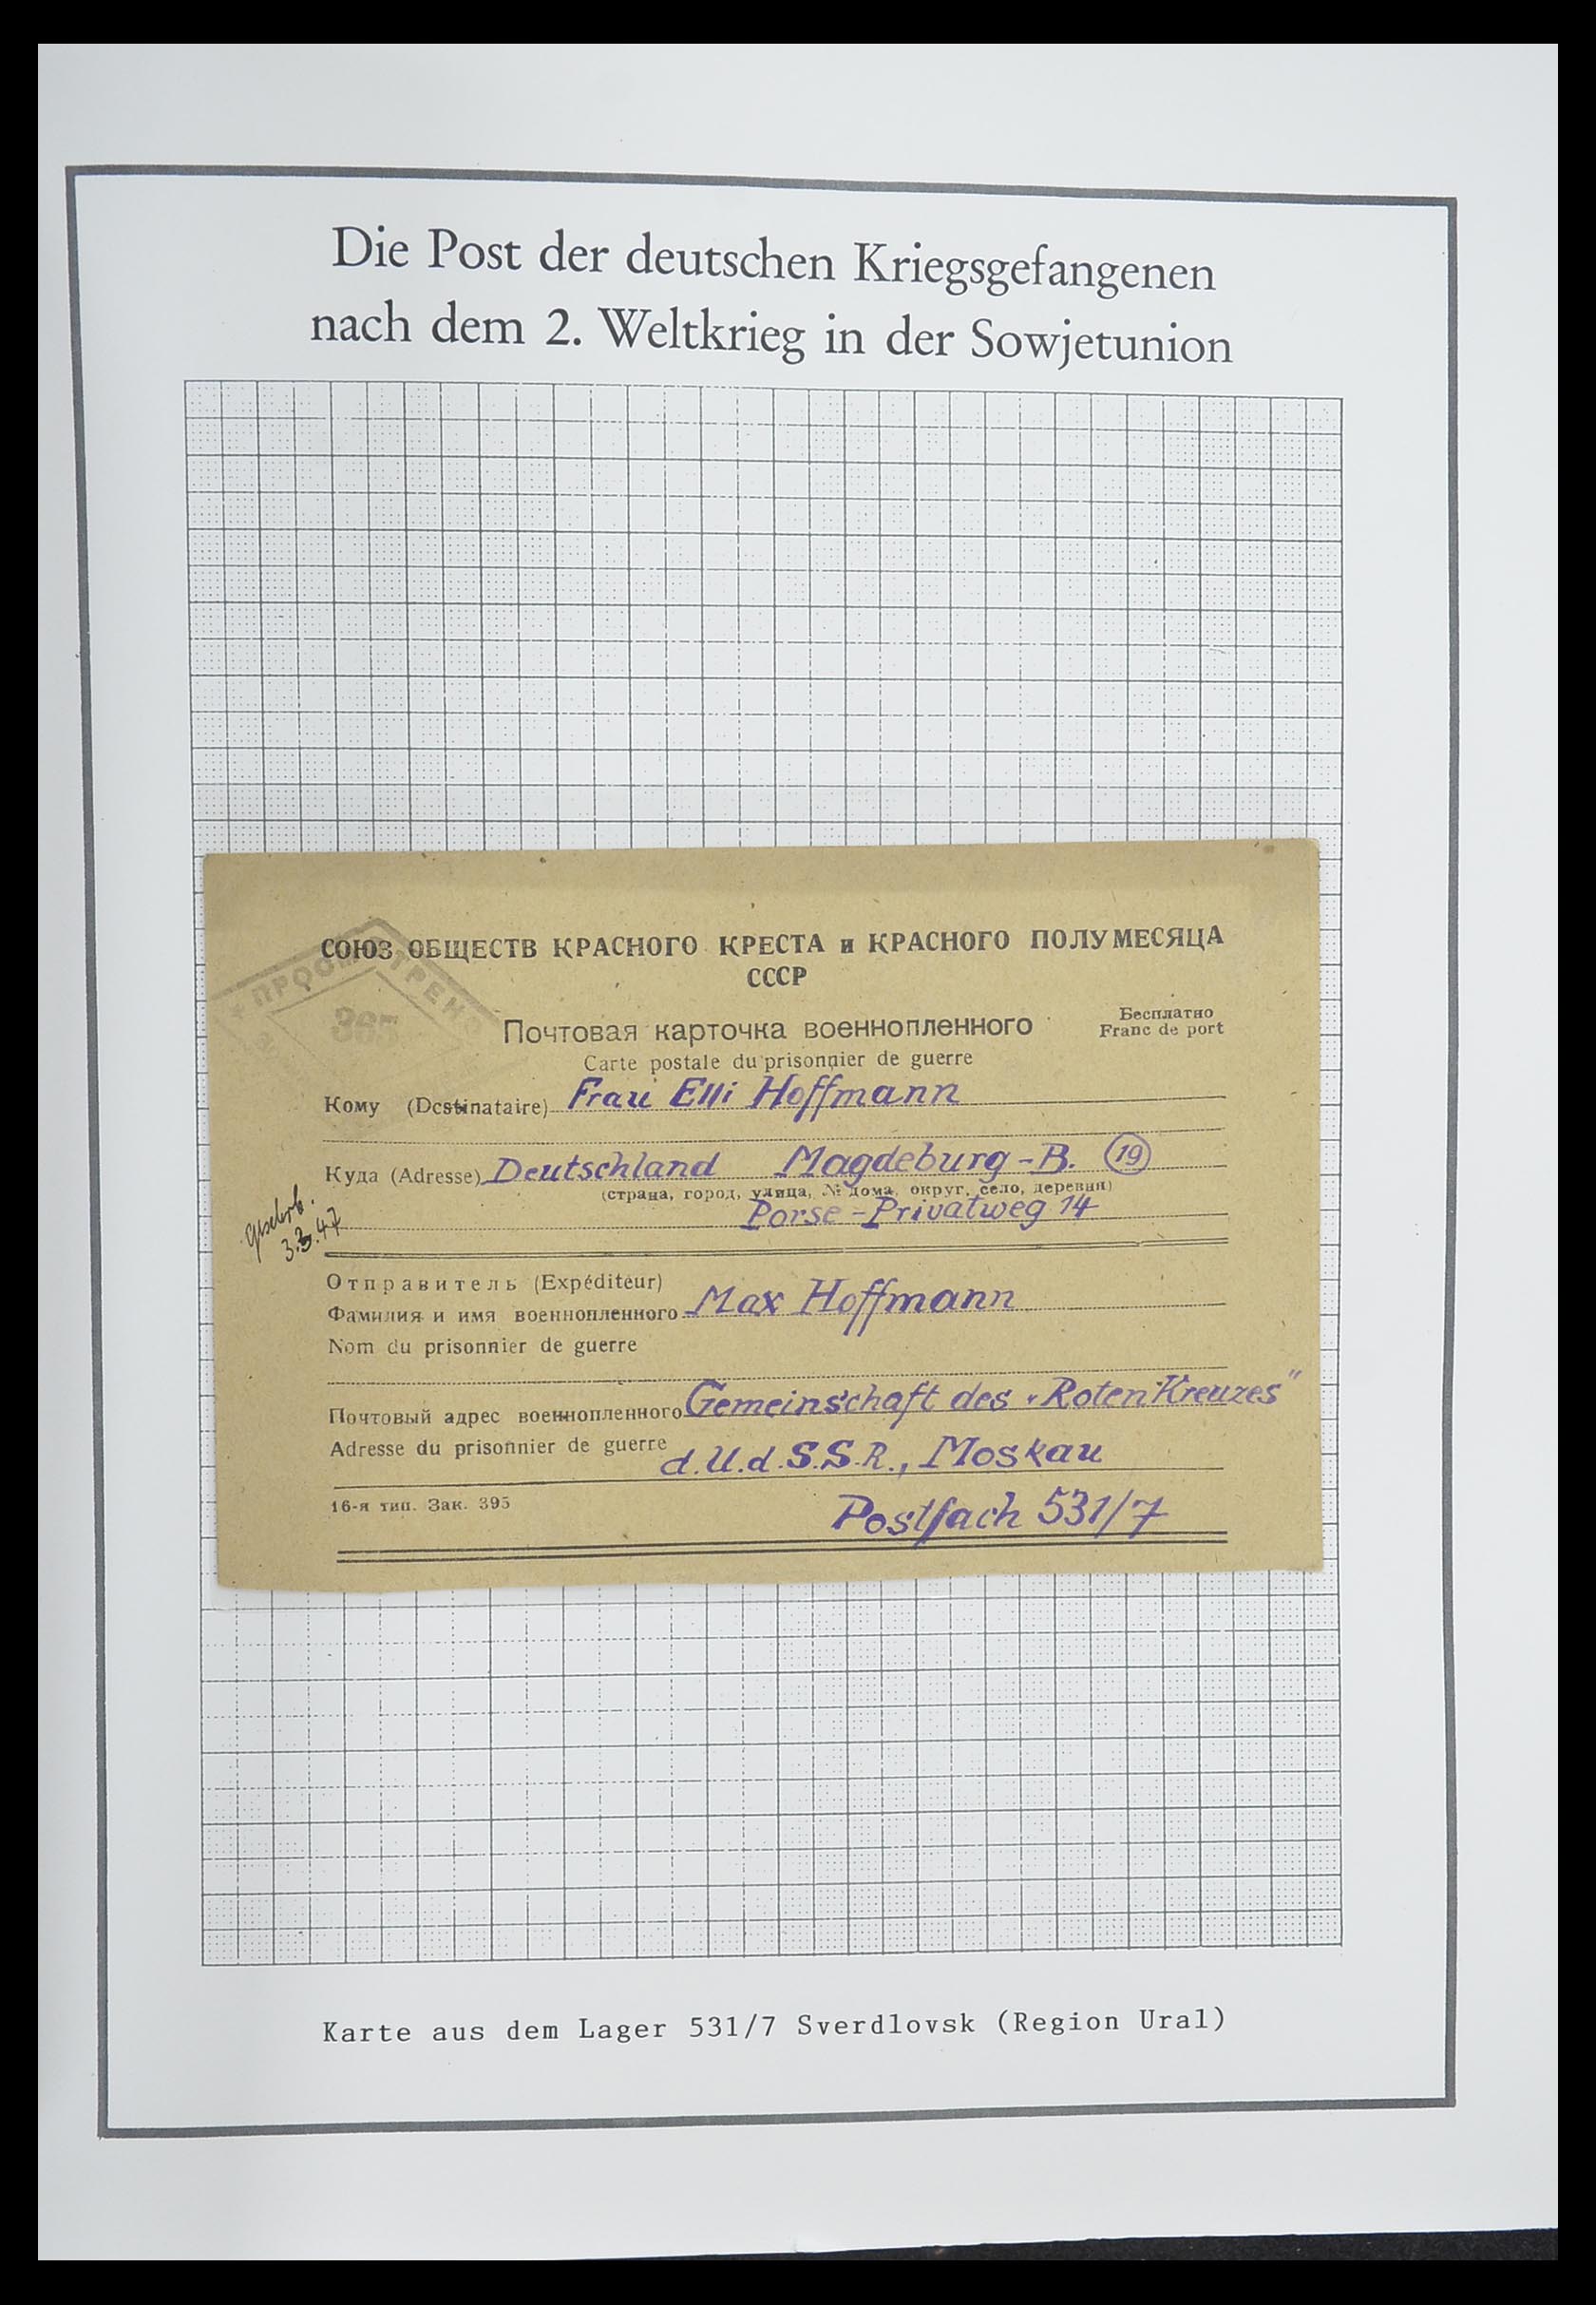 Die Post der deutschen Kriegsgefangenen
nach dem 2. Weltkrieg in der Sowjetunion
СОЮЗ ОБЩЕСТВ КРАСНОГО КРЕСТА и КРАСНОГО ПОЛУМЕСЯЦА
СССР
365
Почтовая карточка военнопленного
Бесплатно
Franc de port
Carte postale du prisonnier de guerre
Кому (Destinataire) Frau Elli Hoffmann
Куда (Adresse) Deutschland Magdeburg-B. 19
(страна, город, улица, № дома, округ, село, деревня)
Porse-Privatweg 14
3.3.47
Отправитель (Expéditeur)
Фамилия и имя военнопленного Max Hoffmann
Nom du prisonnier de guerre
Почтовый адрес военнопленного Gemeinschaft des "Roten Kreuzes"
Adresse du prisonnier de guerre d.U.d.S.S.R., Moskau
16-я тип. Зак. 395
Postfach 531/7
Karte aus dem Lager 531/7 Sverdlovsk (Region Ural)